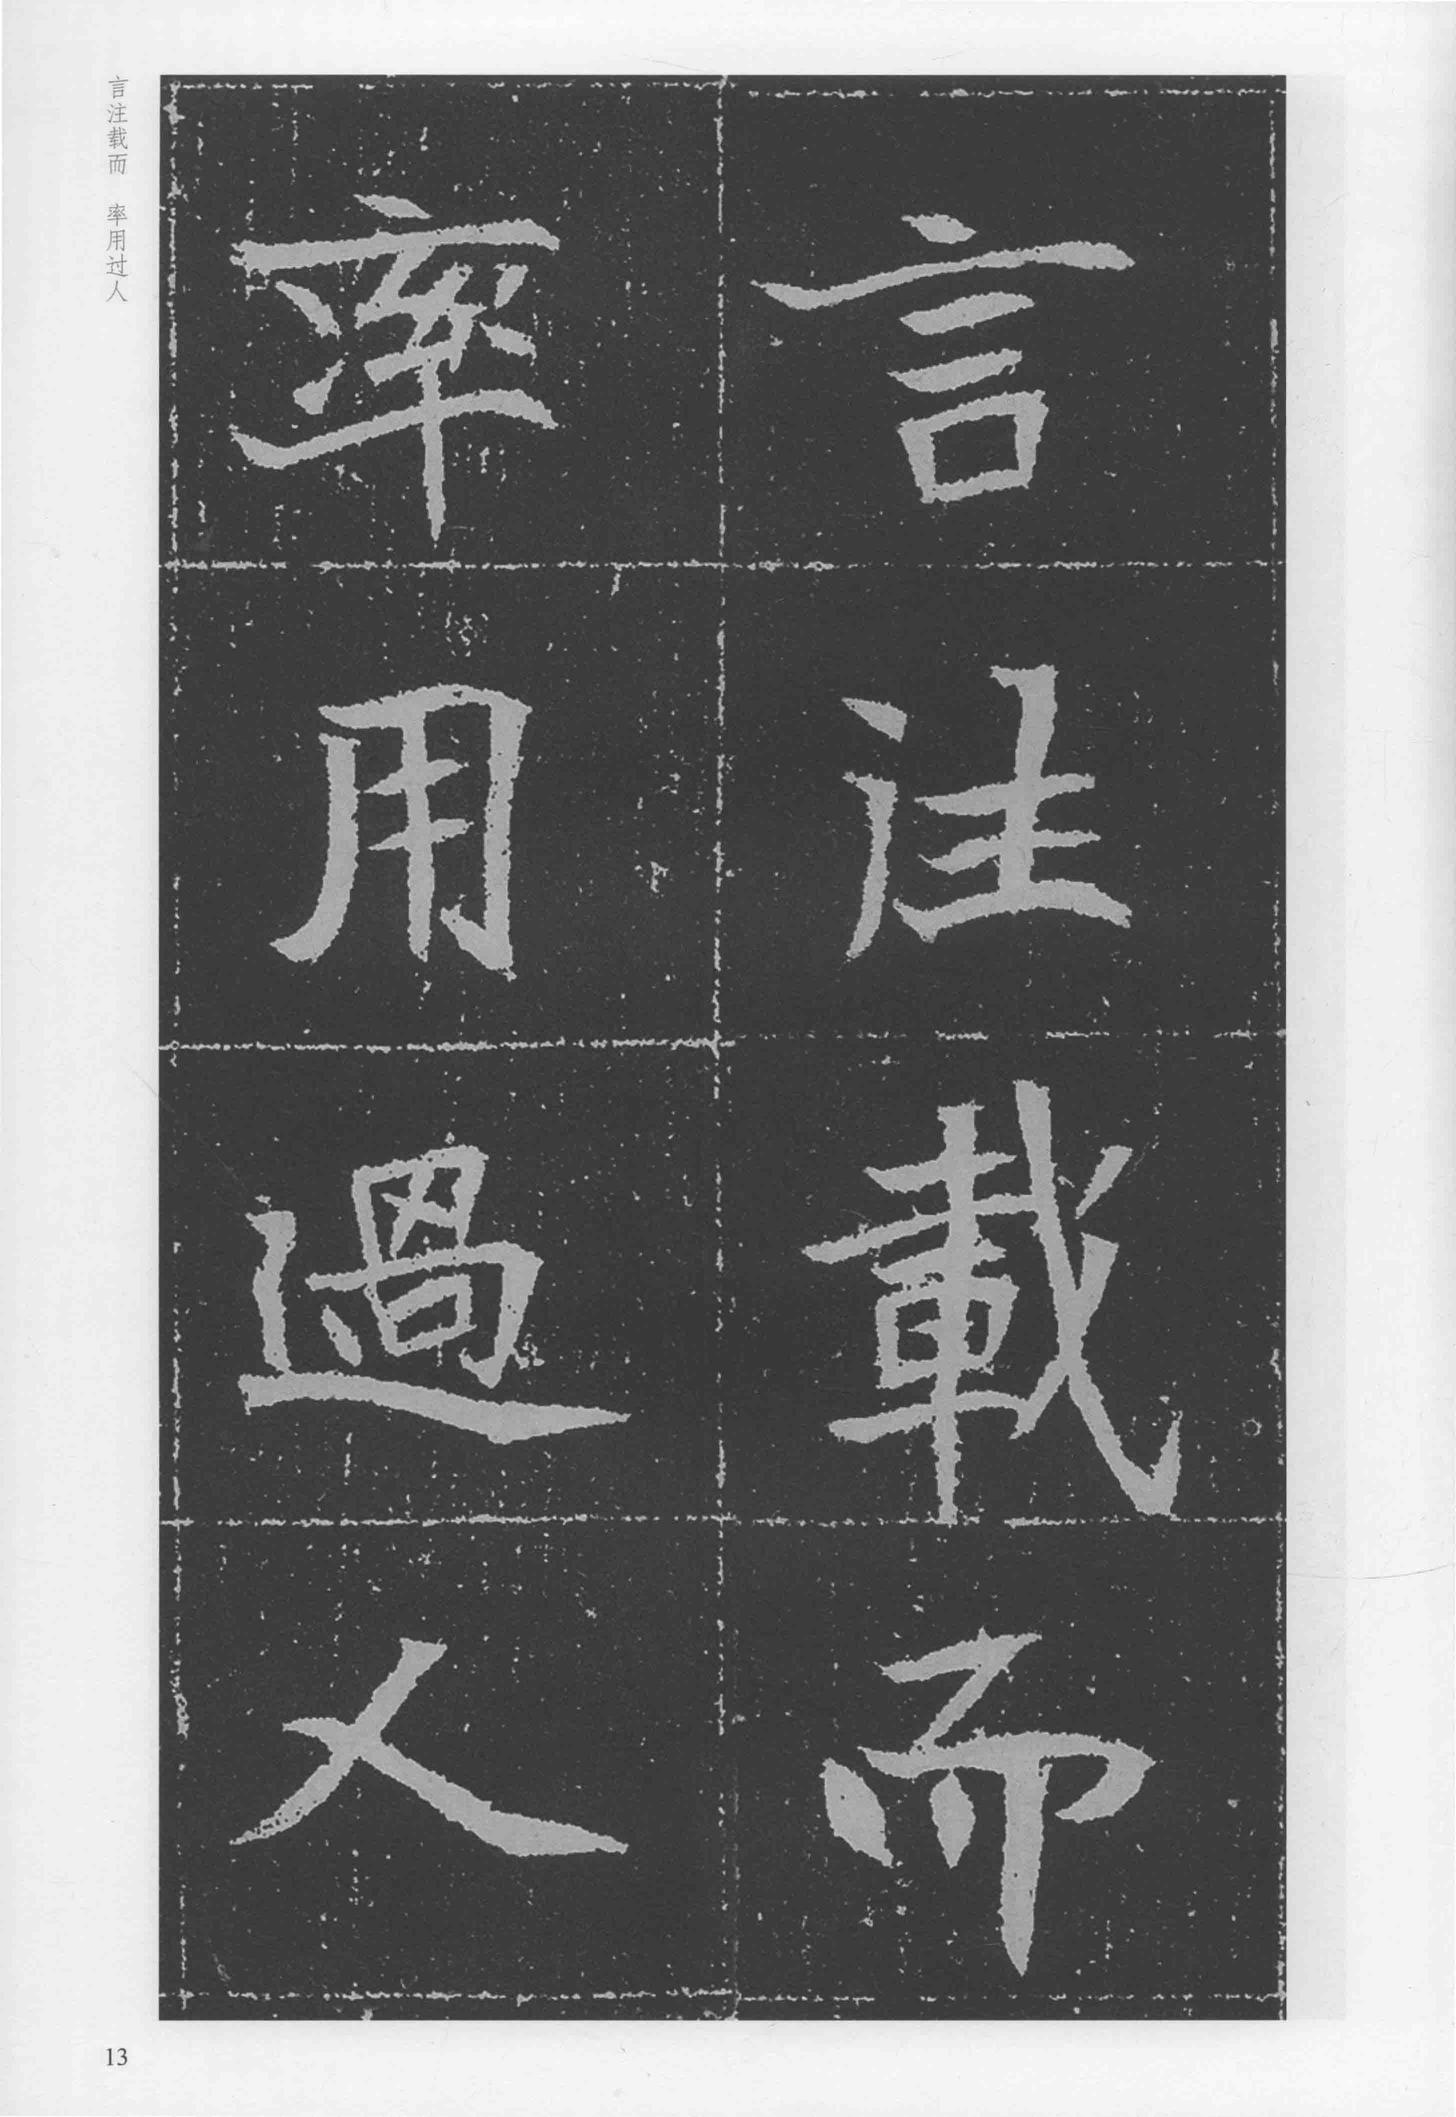 言注載而
率用過人
言注载而　率用过人
13